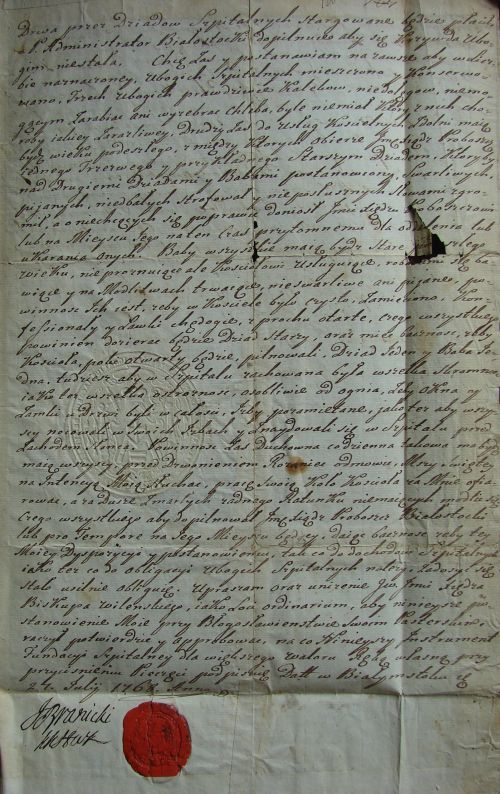 Drwa przez Dziadow Szpitalnych stargowane będzie płacił
Administrator Białostocki dopilnuie aby się Krzywda Ubo-
gim niestała. Chcę Zaś y postanawiam na zawsze aby w obrę-
bie naznaczoney, Ubogich Szpitalnych mieszczono y Konserwo-
wano, Trzech Ubogich prawdziwie Kalekow, niedołęgow, niemo-
gącym Zarabiac ani wyzebrac Chleba, byle niemiał Ktory z nich cho-
roby iakiey Zaraźliwey, Drudzy Zas do Usług Koscielnych Zdolni maią
byc wieku podeszłego, z między Ktorych obierze Xiądz Proboszcz
iednego Trzezwego y przykładnego Starszym Dziadem, Ktoryby
nad Drugiemi Dziadami y Babami postanowiony, Swarliwych,
pijanych, niedbałych Strofował y nieposłusznych Słowami gro-
mił, a o niechcących się poprawic donosił Jmci Xiędzu Proboszczowi
lub na Mieyscu Jego na ten Czas przytomnemu dla oddalenia lub
ukarania onych. Baby wszystkie maią bydz Stare
wieku, nie prozniuiące ale Kosciołowi Usługuiące, robotami się ba-
wiące y na Modlitwach trwaiące, nieswarliwe ani pijane, po-
winnosc Ich iest, zeby w Kosciele było czysto, Zamieciono, Kon-
fesyonały y Ławki chędogie, z prochu otarte, czego wszystkiego
powinien dozierac będzie Dziad Stary, oraz miec bacznosc, azeby
Kościoła, poki otwarty będzie, pilnowali, Dziad Jeden y Baba Je-
dna, tudziesz aby w Szpitalu zachowana była wszelka Skromnosc,
iako tez wszelka ostroznosc, osobliwie od ognia, Zeby Okna y
Zamki Drzwi byli w całosci, Izby pozamiatane, jako tez aby wszy-
scy nocowali w swych Izbach y Znaydowali się w Szpitalu przed
Zachodem Słonca. Powinnosc Zas Duchowna codzienna takowa ma bydz
maią wszyscy przed Dzwonieniem Koroniec odmowic, Mszy Swiętey
na Intencyą Moię słuchac, pracę Swoię Koło Kosciola za Mnie ofia-
rowac, a za Dusze Zmarłych zadnego Ratunku niemaiących
Czego wszystkiego aby dopilnował Jmc Xiądz Proboszcz Białostocki
lub pro Tempore na Jego Mieyscu będący, daiąc bacznosc zeby tey
Moiey Dyspozycyi y postanowieniu, tak co do dochodow Szpitalnych
iako tez co do obligacyi Ubogich Szpitalnych nalezy, Zadosyc się
stało usilnie obliguię. Upraszam oraz unizenie Jw. Jmci Xiędza
Biskupa wilenskiego, iako Loci ordinarium, aby ninieysze po-
stanowienie Moie przy Błogosławienstwie Swoim Pasterskim,
raczył potwierdzic y approbowac, na co Ninieyszy Instrument
Fundacyi Szpitalney dla większego waloru Ręką własną przy
przycisnieniu Pieczęci podpisuię. Datt w Białymstoku die
Julij Anno
JBranicki